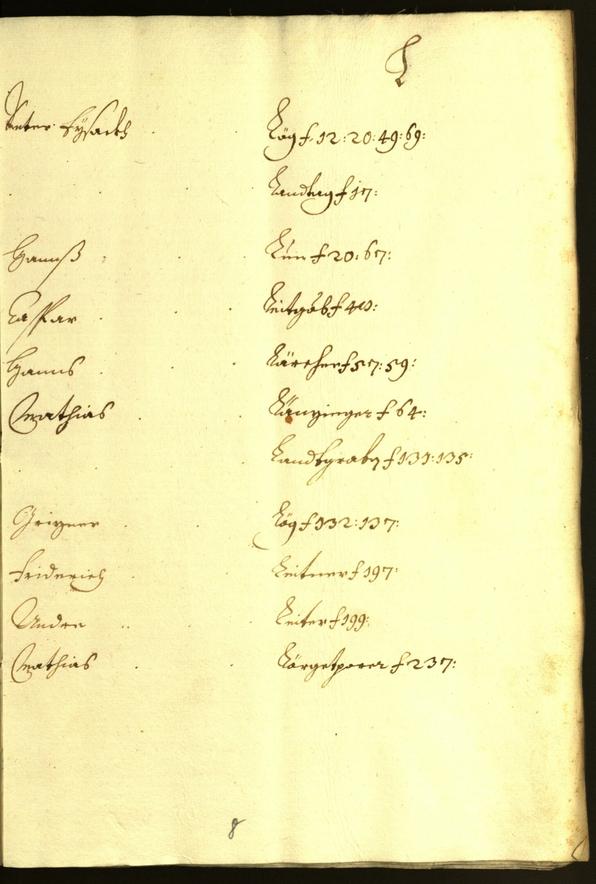 L
Unter Eysackh Läg f. 12: 20: 49: 69:
Landtag f 17:
Hannß Lun f 20: 67:
Caspar Leitgäb f 40:
Hanns Lärcher f 57: 59:
Mathias Länzinger f 64:
Landtgraby f 131: 135:
Läg f 132: 137:
Friderich Leitner f 197:
Andre Leiter f 199:
Mathias Lärgetporer f 237:
8